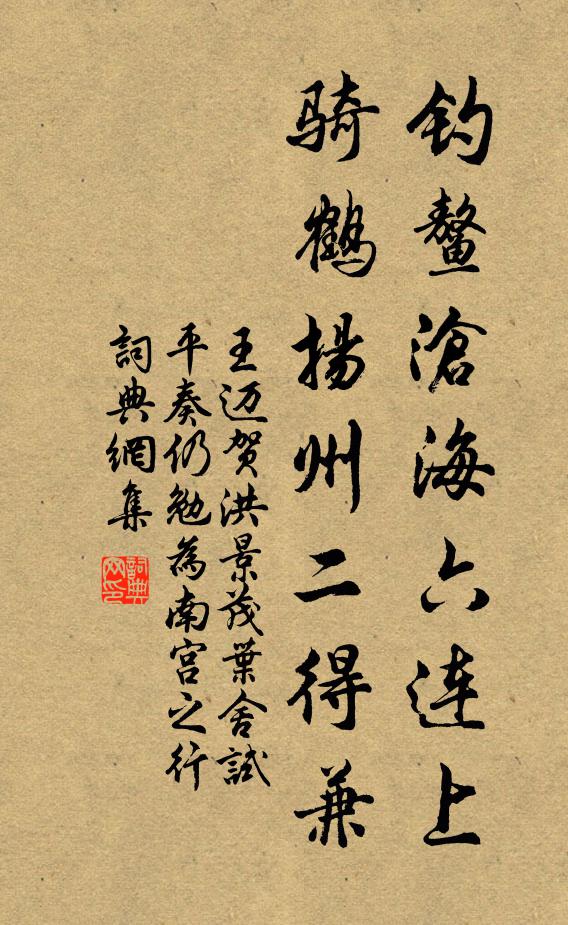 钓鳌滄海六连上
骑鶴揚州二得兼
王迈贺洪景茂葉舍試
平奏仍勉為南宫之行
詞典網集
詞典网印